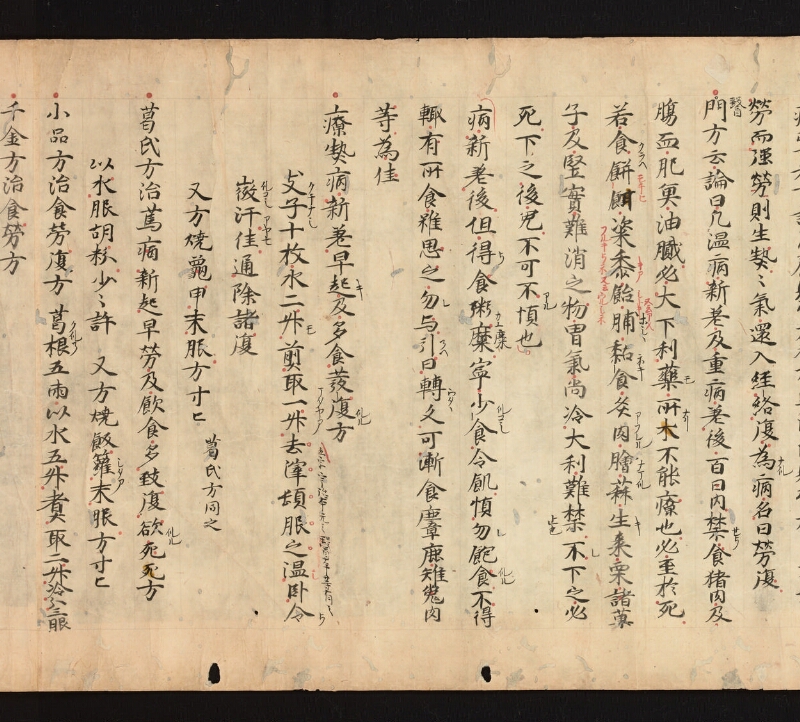 勞而强勞則生熱々氣還入經絡復為病名曰勞復
醫門方云論曰凡溫病新差及重病差後百日內禁食猪肉及
腸血肥臭油膩必大下利藥所不能療也必至於死
若食餅粢黍飴脯黏食炙肉膾蒜生棗栗諸菓
子及堅實難消之物胃氣尚冷大利難禁不下之必
死下之復危不可不慎也
病新差後但得食粥糜寧少食令飢慎勿飽食不得
輙有所食雖思之勿与引日轉久可漸食麞鹿雉兔肉
等為佳
療熱病新差早起及多食發復方
支子十枚水二升煎取一升去滓頓服之溫卧令
汗佳通除諸復
又方燒龜甲末服方寸匕 葛氏方同之
葛氏方治篤病新起早勞及飲食多致復欲死方
以水服胡粉少々許 又方燒飯籮末服方寸匕
小品方治食勞復方 葛根五兩以水五升煮取二升冷分三服
千金方治食勞方